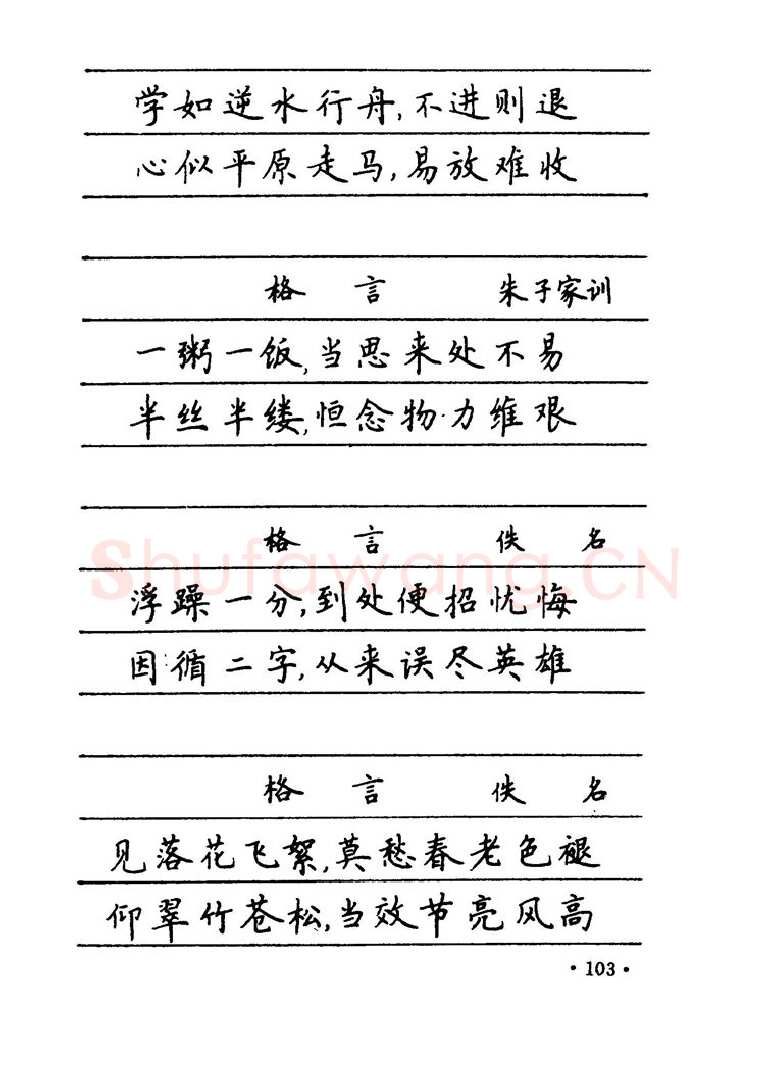 学如逆水行舟,不进则退
心似平原走马,易放难收
格言 朱子家训
一粥一饭,当思来处不易
半丝半缕,恒念物力维艰
格言 佚名
浮躁一分,到处便招忧悔
因循二字,从来误尽英雄
格言 佚名
见落花飞絮,莫愁春老色褪
仰翠竹苍松,当效节亮风高
·103·
Shufawang.CN